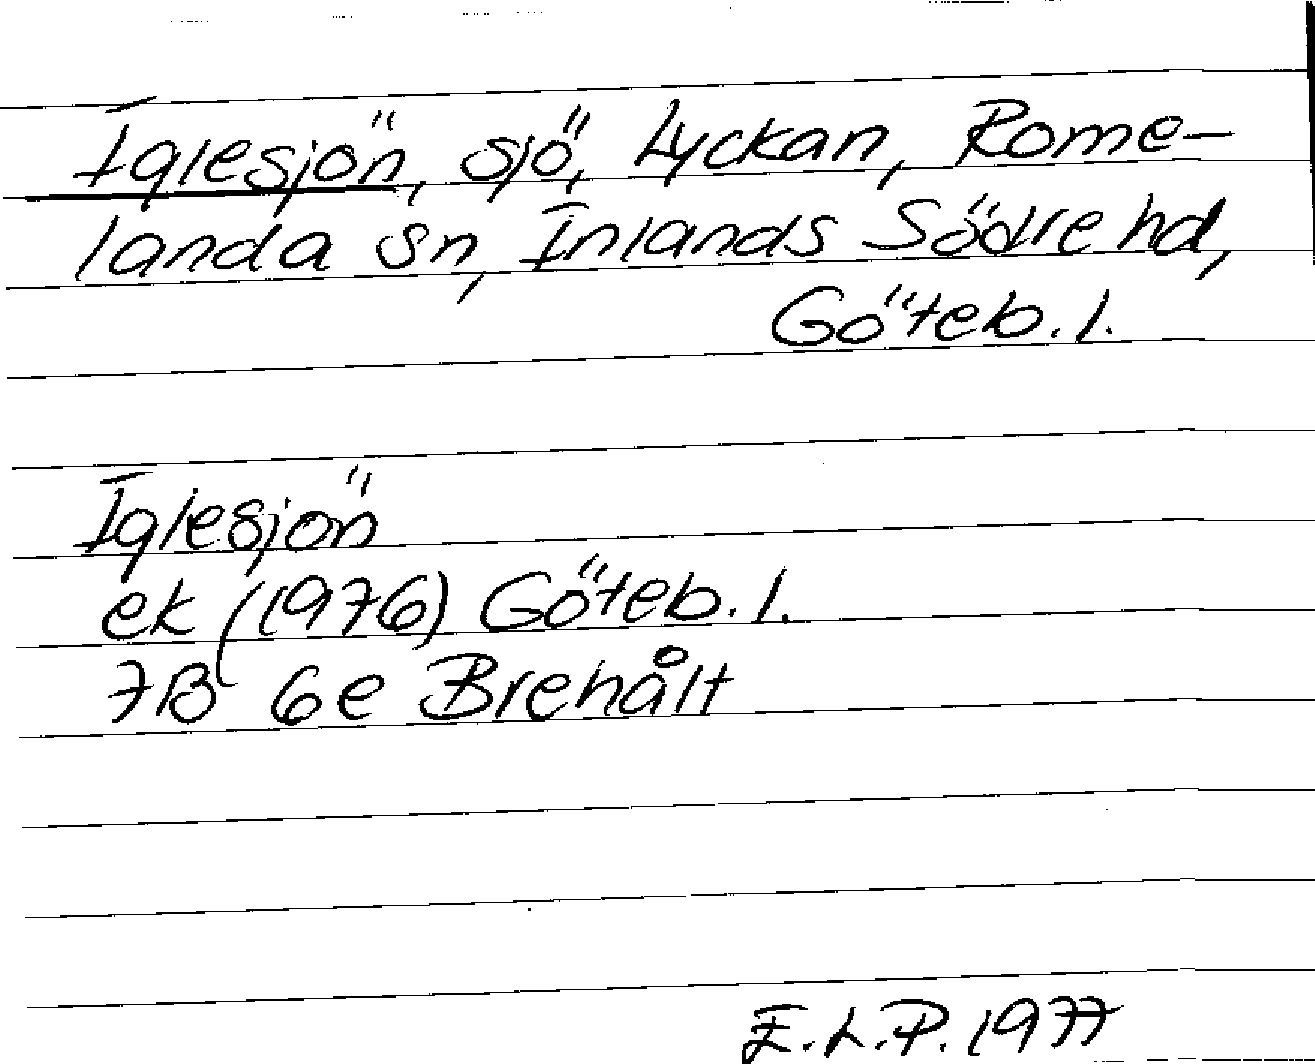 Iglesjön, sjö, Lyckan, Rome-
landa sn, Inlands Södre hd,
Göteb. l.
Iglesjön
ek (1976) Göteb. l.
7B 6e Brehålt
E.L.P. 1977